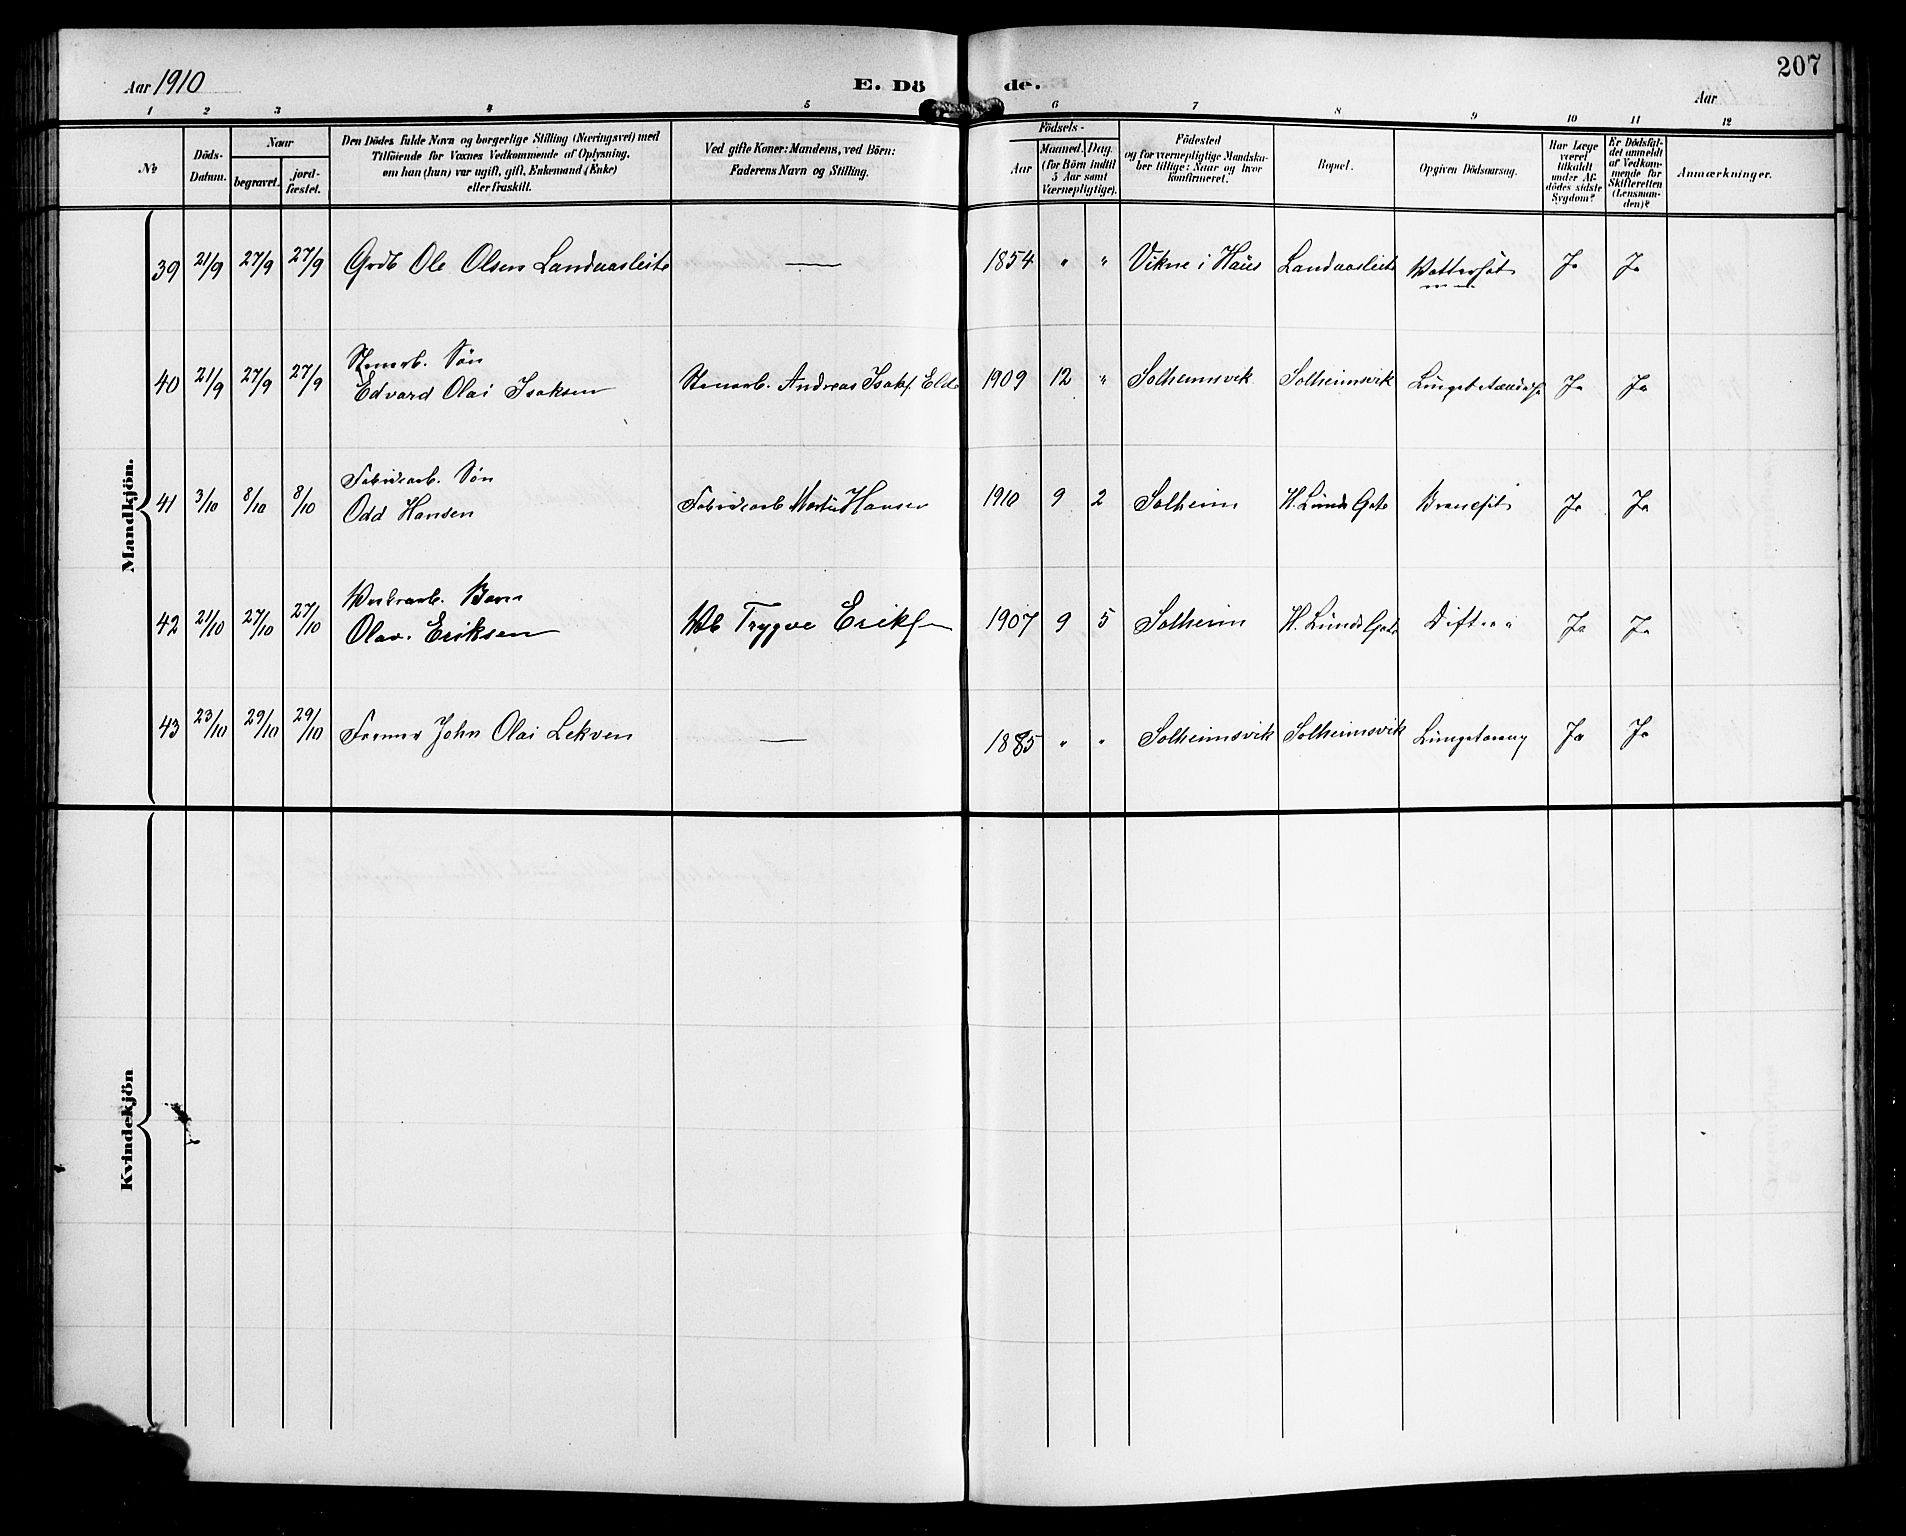 Aar 1910 E. Dö de. Aar 207
1 2 3 4 5 6 7 8 9 10 11 12
No
Döds-Datum.
Naar
begravet.
jord-fæstet.
Den Dödes fulde Navn og borgerlige Stilling (Næringsvei) med
Tilföiende for Voxnes Vedkommende af Oplysning,
om han (hun) var ugift, gift, Enkemand (Enke)
eller fraskilt.
Ved gifte Koner: Mandens, ved Börn:
Faderens Navn og Stilling.
Födsels-
Aar
Maaned. Dag.
(for Börn indtil
5 Aar samt
Værnepligtige).
Födested
og for værnepligtige Mandska-
ber tillige: Naar og hvor
konfirmeret.
Bopæl.
Opgiven Dödsaarsag.
Har Læge
været
tilkaldt
under Af-
dödes sidste
Sygdom?
Er Dödsfal-
det anmeldt
af Vedkom-
mende for
Skifteretten
(Lensman-
den)?
Anmærkninger.
Mandkjön.
39 21/9 27/9 27/9 Grdb Ole Olsen Landaasleite — 1854 " " Vikne i Haus Landaasleite Vattersot Ja Ja
Stenarb. Sön
40 21/9 27/9 27/9 Edvard Olai Isaksen Stenarb. Andreas Isaks. Elde 1909 12 " Solheimsvik Solheimsvik Ja Ja
Fabrikarb. Sön
41 3/10 8/10 8/10 Odd Hansen Fabrikarb Martin Hansen 1910 9 2 Solheim H. Lunds Gate Ja Ja
Verksarb. Barn
42 21/10 27/10 27/10 Olav. Eriksen Trygve Eriks 1907 9 5 Solheim H. Lunds Gate Difteri Ja Ja
43 23/10 29/10 29/10 Former John Olai Lekven — 1885 " " Solheimsvik Solheimsvik Ja Ja
Kvindekjön